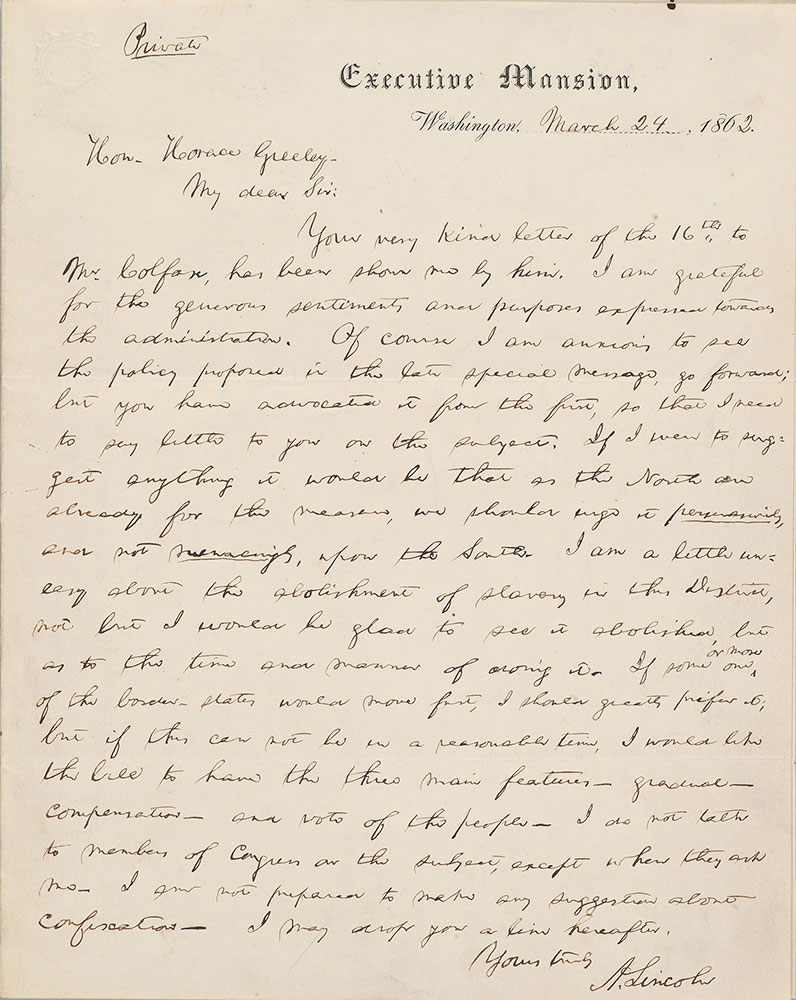 Private
Executive Mansion,
Washington, March 24, 1862.
Hon. Horace Greeley-
My dear Sir:
Your very kind letter of the 16th, to
Mr. Colfax, has been shown me by him. I am grateful
for the generous sentiments and purposes expressed towards
the administration. Of course I am anxious to see
the policy proposed in the late special message, go forward;
but you have advocated it from the first, so that I need
to say little to you on the subject. If I were to sug=
gest anything it would be that as the North are
already for the measure, we should urge it persuasively,
and not menacingly, upon the South. I am a little un=
easy about the abolishment of slavery in this District,
not but I would be glad to see it abolished, but
as to the time and manner of doing it. If some one or more
of the border-states would move fast, I should greatly prefer it;
but if this can not be in a reasonable time, I would like
the bill to have the three main features— gradual—
compensation— and vote of the people— I do not talk
to members of Congress on the subject, except when they ask
me— I am not prepared to make any suggestion about
confiscation— I may drop you a line hereafter.
Yours truly
A. Lincoln